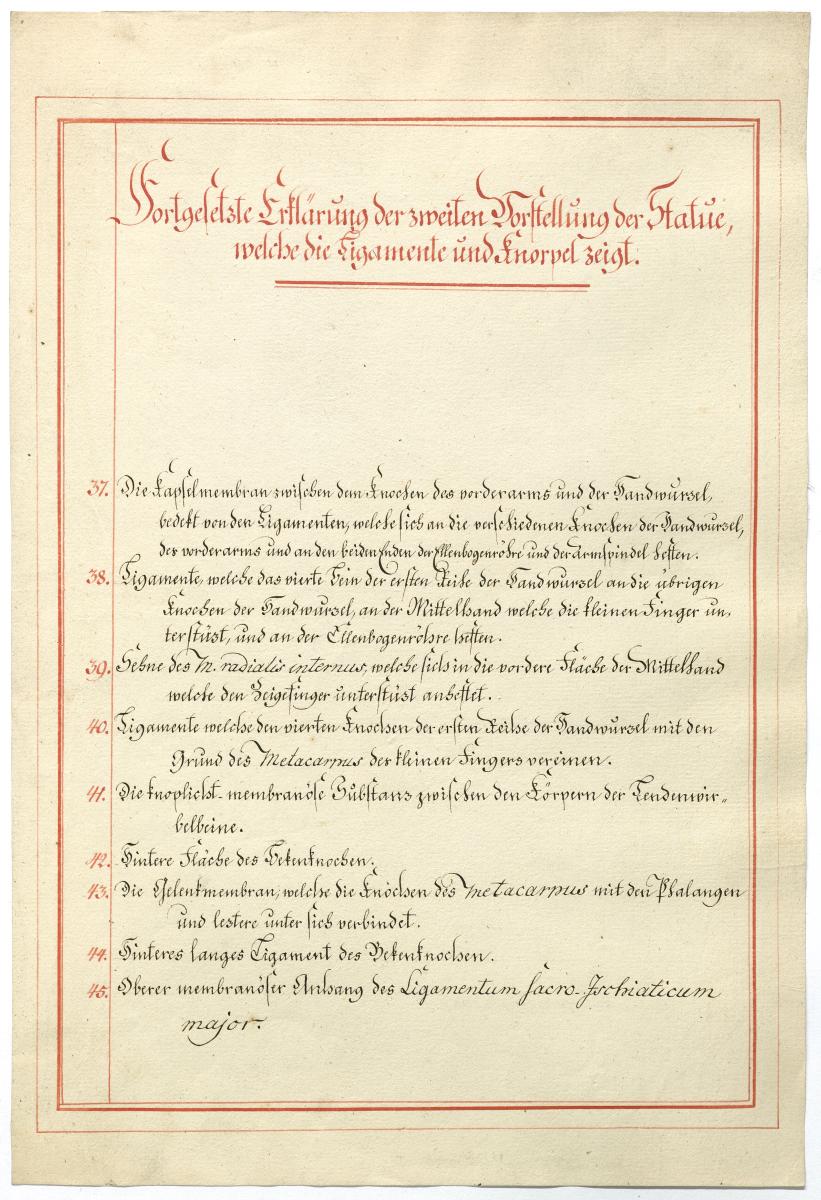 Fortgesetzte Erklärung der zweiten Vorstellung der Statue,
welche die Ligamente und Knorpel zeigt.
37. Die Kapselmembran zwischen dem Knochen des vorderarms und der Handwurzel,
bedekt von den Ligamenten, welche sich an die verschiedenen Knochen der Handwurzel,
des vorderarms und an den beiden Enden der Ellenbogenröhre und der Armspindel heften.
38. Ligamente, welche das vierte Bein der ersten Reihe der Handwurzel an die übrigen
Knochen der Handwurzel, an der Mittelhand welche die kleinen Finger un-
terstüzt, und an der Ellenbogenröhre heften.
39. Sehne des M. radialis internus, welche sich in die vordere Fläche der Mittelhand
welche den Zeigefinger unterstüzt anheftet.
40. Ligamente welche den vierten Knochen der ersten Reihe der Handwurzel mit den
Grund des Metacarpus der kleinen Fingers vereinen.
41. Die knoplicht-membranöse Substanz zwischen den Körpern der Lendenwir-
belbeine.
42. Hintere Fläche des Bekenknochen.
43. Die Gelenkmembran, welche die Knochen des Metacarpus mit den Phalangen
und leztere unter sich verbindet.
44. Hinteres langes Ligament des Bekenknochen.
45. Oberer membranöser Anhang des Ligamentum sacro-Ischiaticum
major.